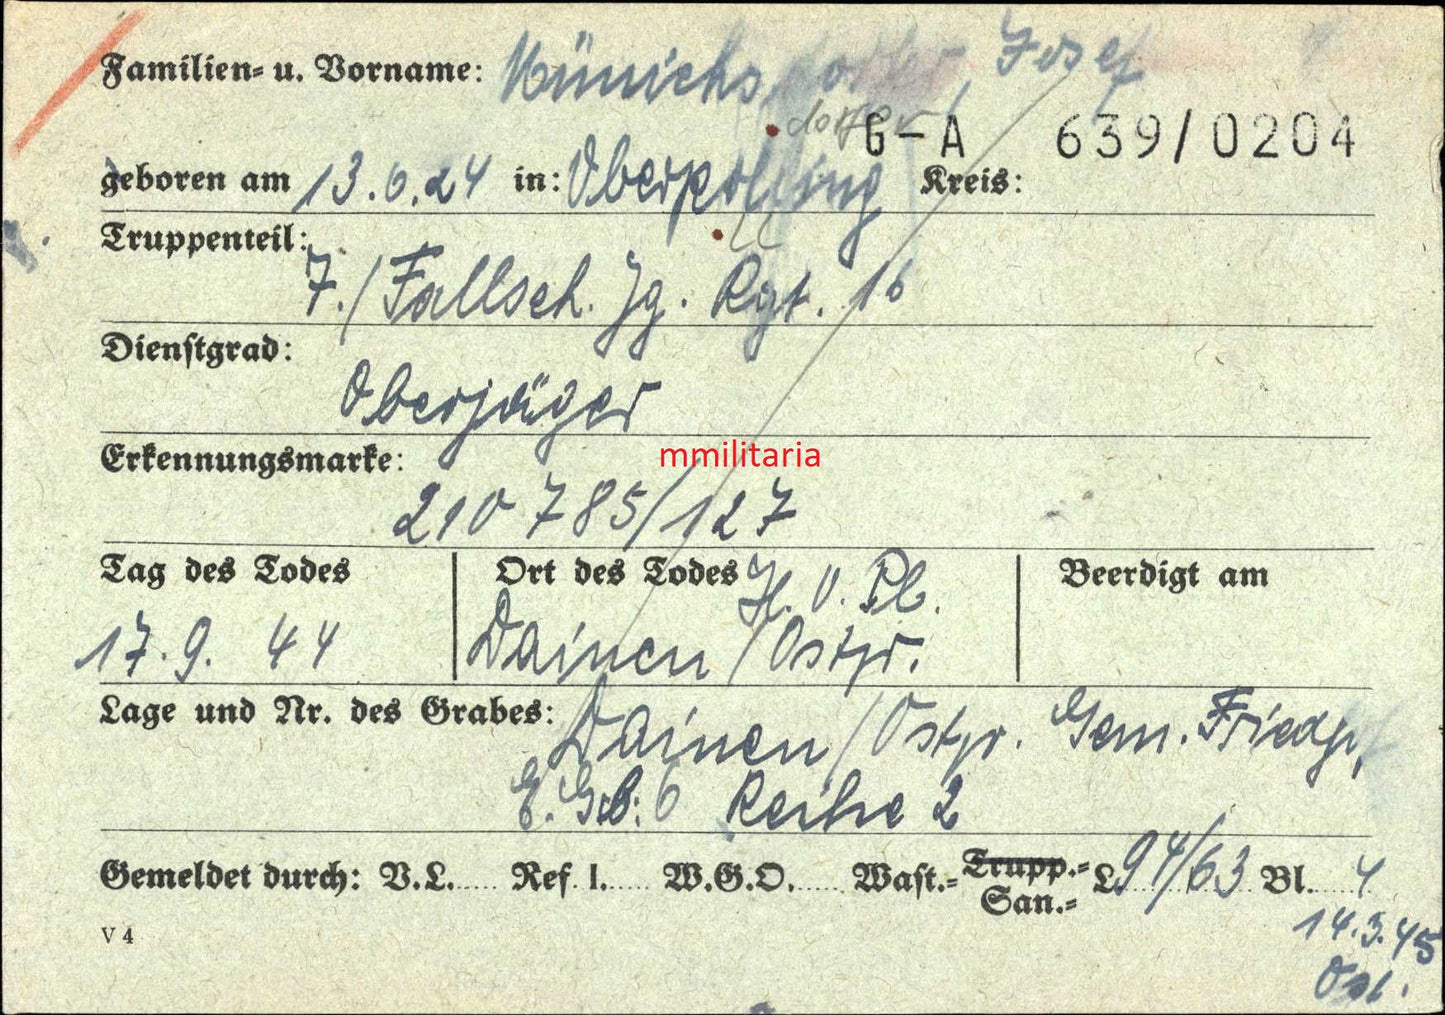 Familien- u. Vorname: Münichsdorfer, Josef
dorfer
G-A 639/0204
geboren am 13.6.24 in: Oberpolling Kreis:
ll
Truppenteil:
7./Fallsch. Jg. Rgt. 16
Dienstgrad:
Oberjäger
Erkennungsmarke:
mmilitaria
210 785/127
Tag des Todes Ort des Todes H.V.Pl. Beerdigt am
17.9.44 Dainen/Ostpr.
Lage und Nr. des Grabes: Dainen/Ostpr. Gem. Friedh,
E. Grb: 6 Reihe 2
Gemeldet durch: V.L..... Ref. I..... W.G.O...... Wast.= Trupp.= L 94/63 Bl. 4
San.=
V 4
14.3.45